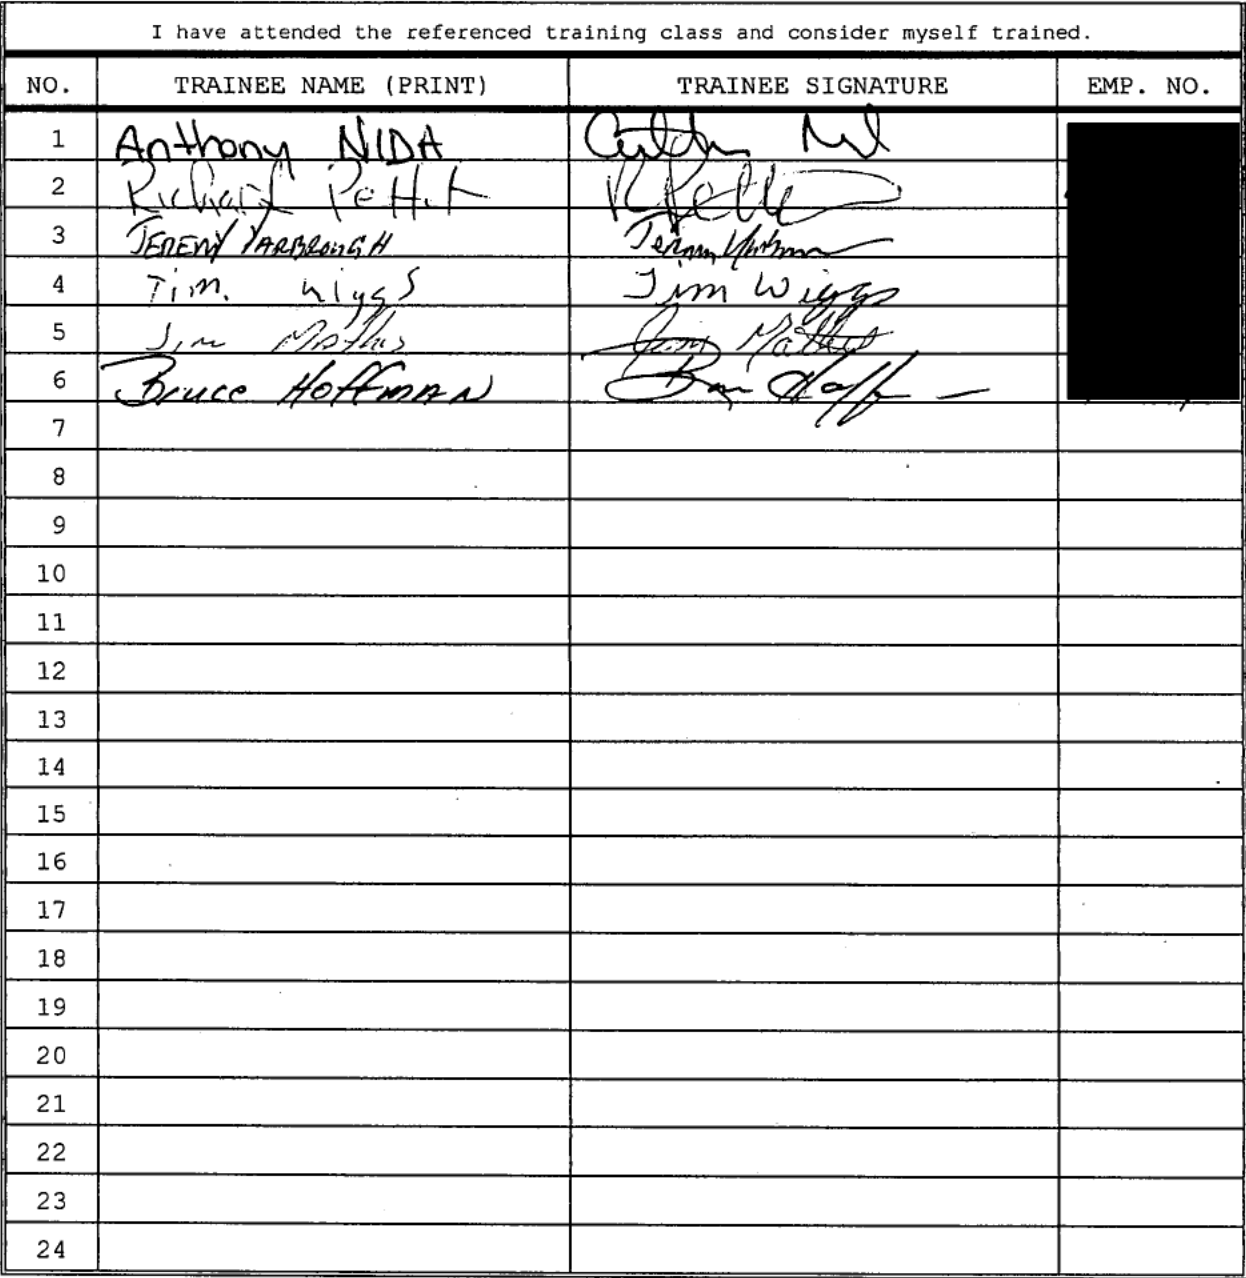 I have attended the referenced training class and consider myself trained.
NO. TRAINEE NAME (PRINT) TRAINEE SIGNATURE EMP. NO.
1 Anthony NIDA
2 Richard Pettit
3 JEREMY YARBROUGH
4 Tim Wiggs Tim Wiggs
5 Jim Mathis Jim Mathis
6 Bruce HoffmAN
7
8
9
10
11
12
13
14
15
16
17
18
19
20
21
22
23
24